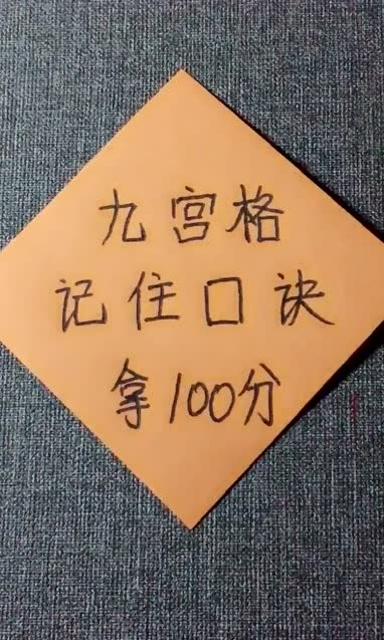 九宫格
记住口诀
拿100分